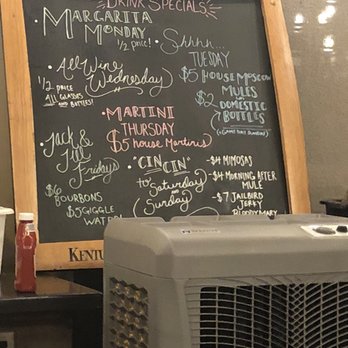 DRINK SPECIALS
MARGARITA
MONDAY
1/2 price!
Shhhh...
TUESDAY
$5 HOUSE MOSCOW
MULES
$2 DOMESTIC
BOTTLES
All Wine
Wednesday
1/2 PRICE
ALL GLASSES
AND BOTTLES!
MARTINI
THURSDAY
$5 house Martinis
Jack &
Jill
Fridays
$6
BOURBONS
$5 GIGGLE
WATER
"CIN
CIN"
to Saturday
and
Sunday
-$4 MIMOSAS
-$4 MORNING AFTER
MULE
-$7 JAILBIRD
JERKY
BLOODY MARY